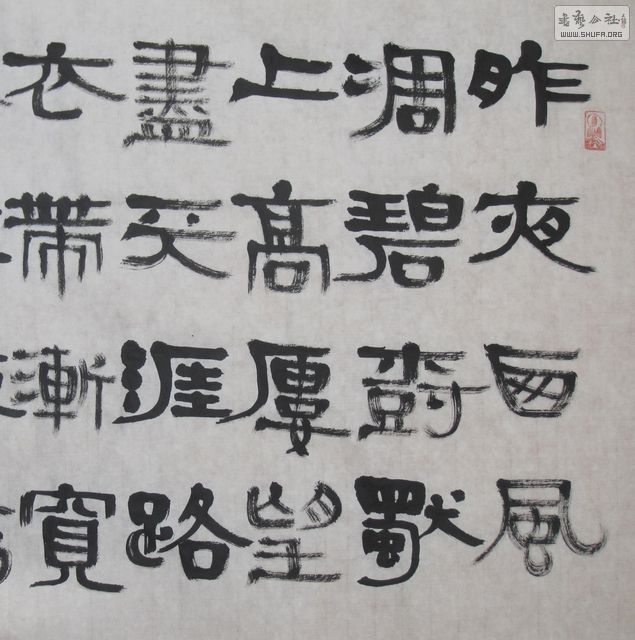 昨夜西風
凋碧尌獨
上高廔望
盡天涯路
衣帶漸寬
書藝公社
WWW.SHUFA.ORG